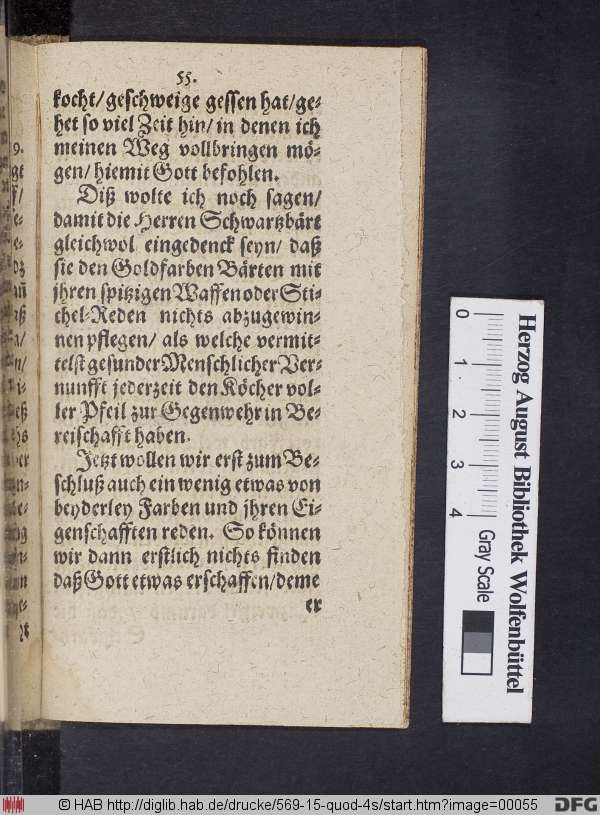 55.
kocht/geschweige gessen hat/ge-
het so viel Zeit hin/ in denen ich
meinen Weg vollbringen mö-
gen/ hiemit Gott befohlen.
Diß wolte ich noch sagen/
damit die Herren Schwartzbärt
gleichwol eingedenck seyn/ daß
sie den Goldfarben Bärten mit
jhren spitzigen Waffen oder Sti-
chel-Reden nichts abzugewin-
nen pflegen/ als welche vermit-
telst gesunder Menschlicher Ver-
nunfft jederzeit den Köcher vol-
ler Pfeil zur Gegenwehr in Be-
reischafft haben.
Jetzt wollen wir erst zum Be-
schluß auch ein wenig etwas von
beyderley Farben und jhren Ei-
genschafften reden. So können
wir dann erstlich nichts finden
daß Gott etwas erschaffen/deme
er
0 1 2 3 4
Gray Scale
Herzog August Bibliothek Wolfenbüttel
© HAB http://diglib.hab.de/drucke/569-15-quod-4s/start.htm?image=00055
DFG